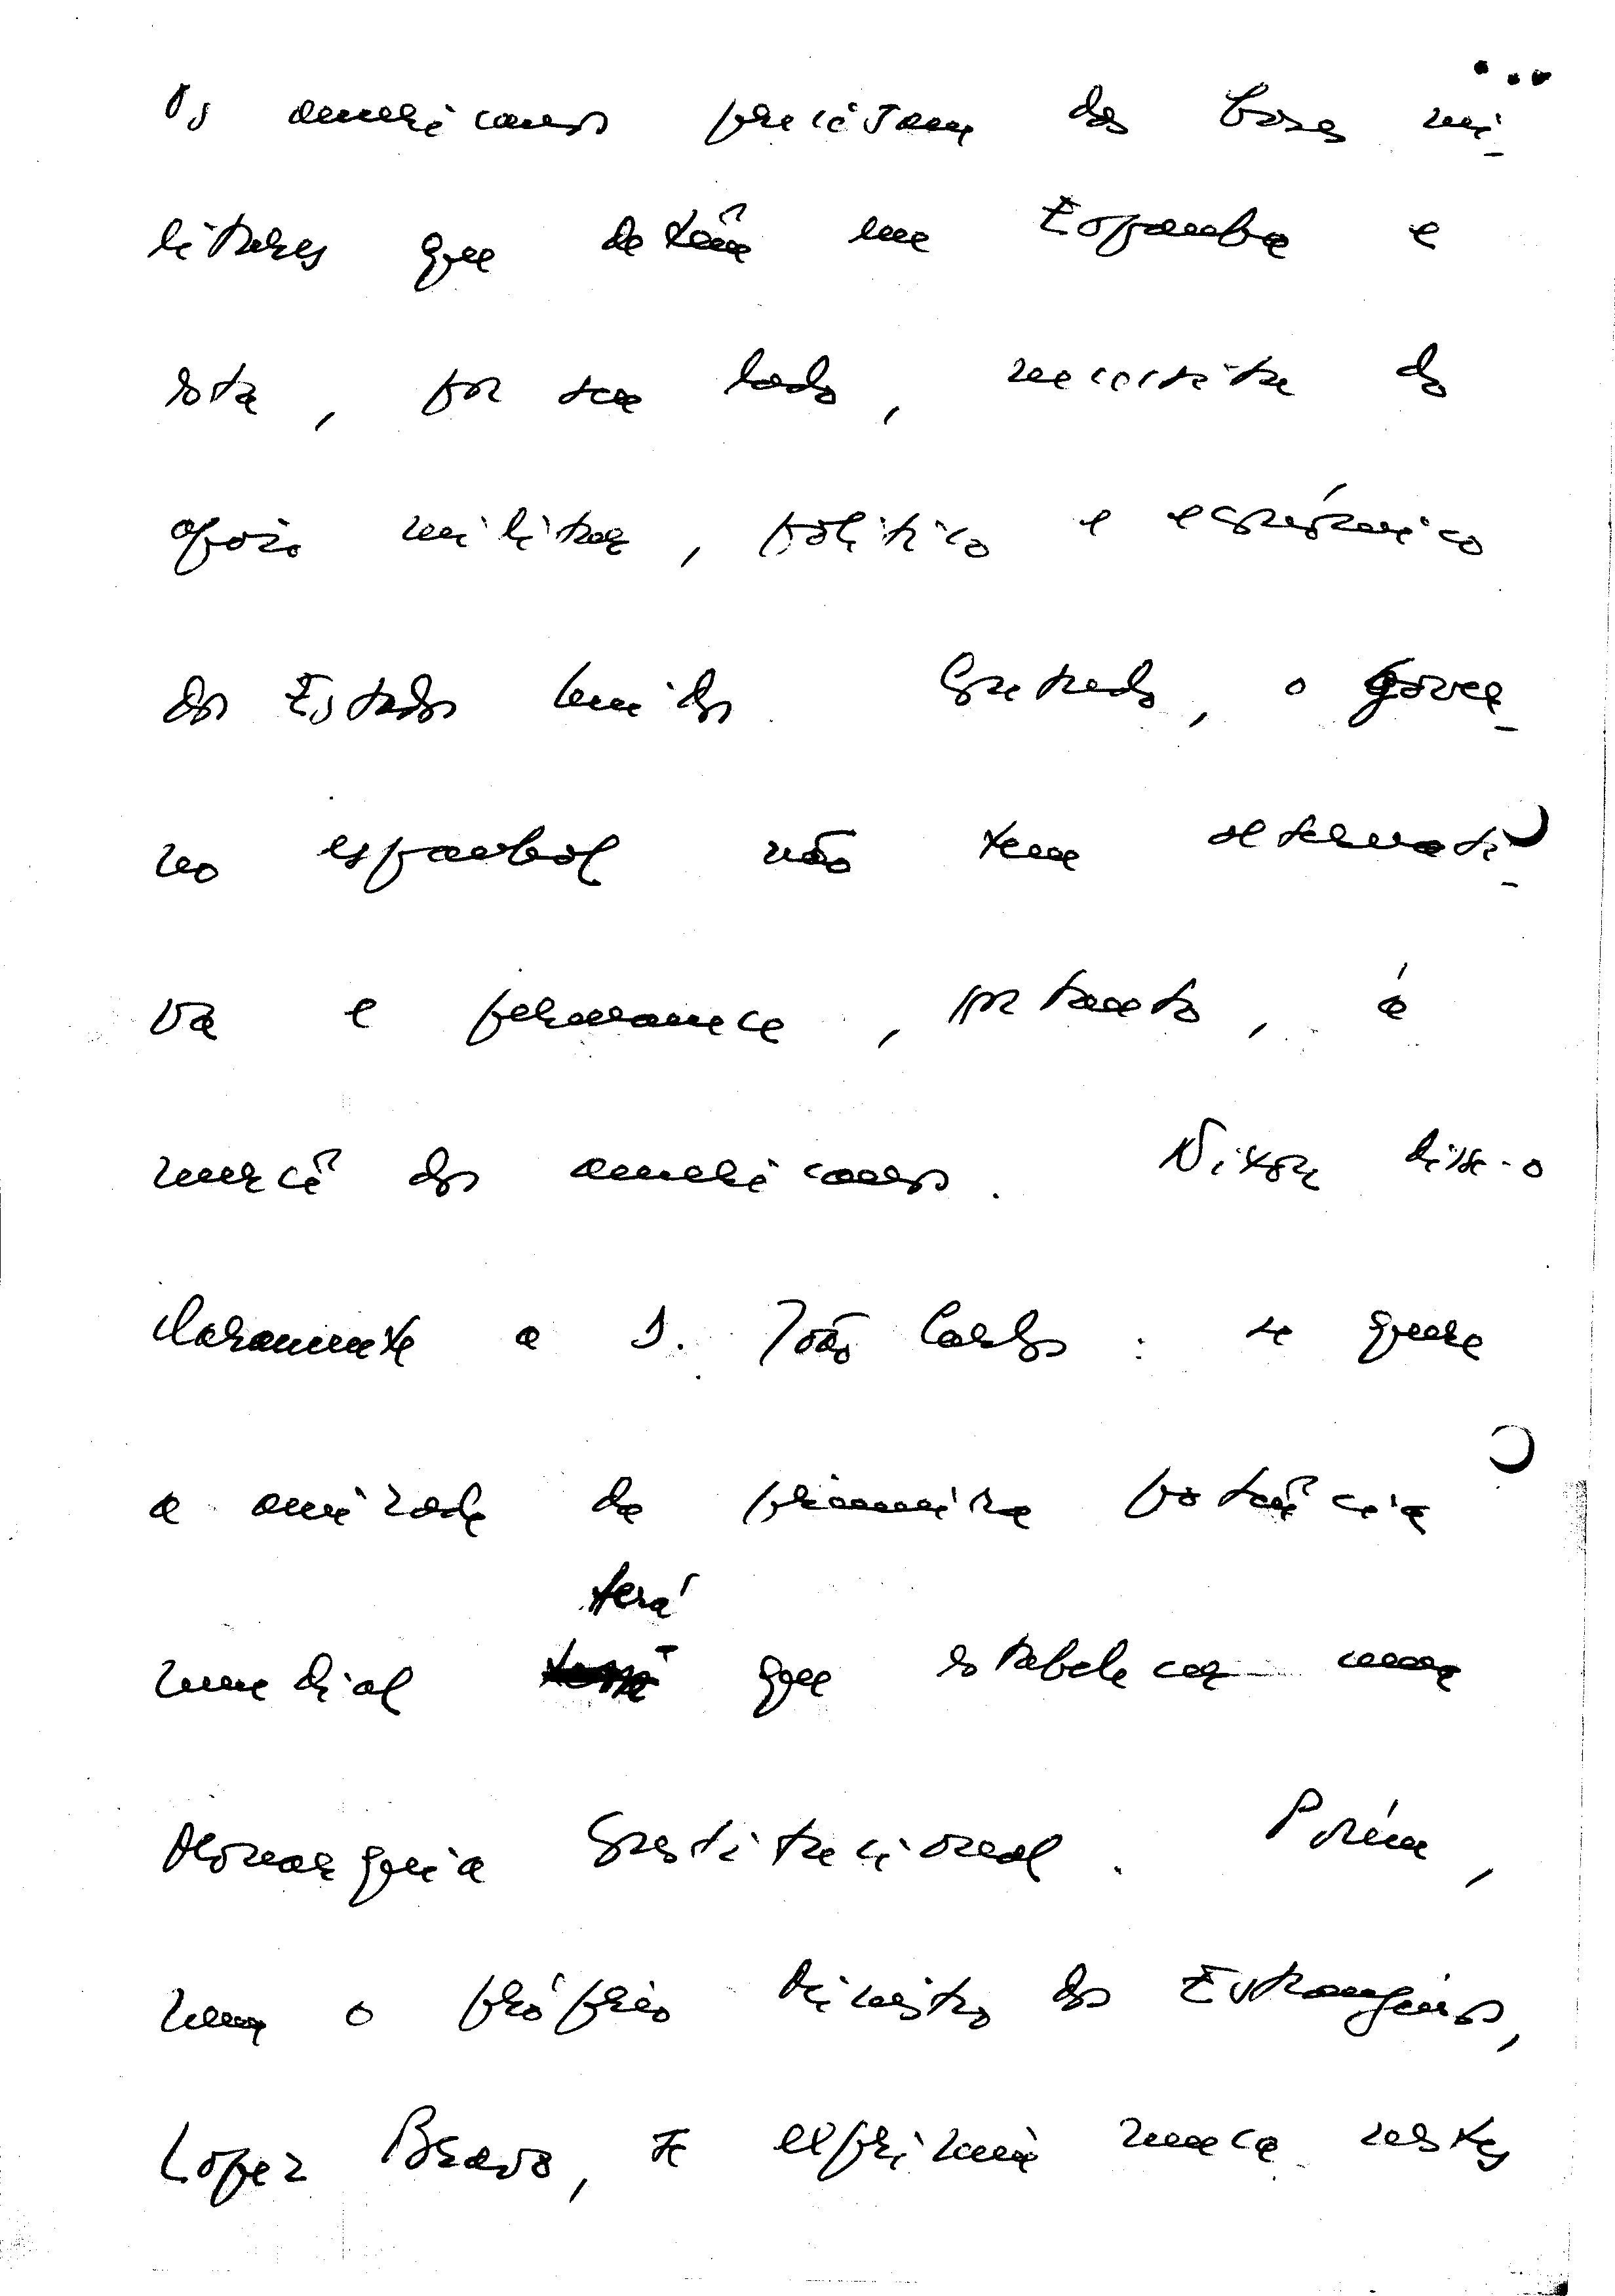 Os americanos precisam das bases mi-
litares que detêm em Espanha e
esta, por seu lado, necessita do
apoio militar, político e económico
dos Estados Unidos. Contudo, o gover-
no espanhol não tem alternati-
va e permanece, portanto, à
mercê dos americanos. Nixon disse-o
claramente a D. João Carlos: se quere
a amizade da primeira potência
terá
mundial que estabelecer uma
Monarquia Constitucional. Porém,
nem o próprio Ministro dos Estrangeiros,
Lopez Bravo, se exprimiu nunca nestes